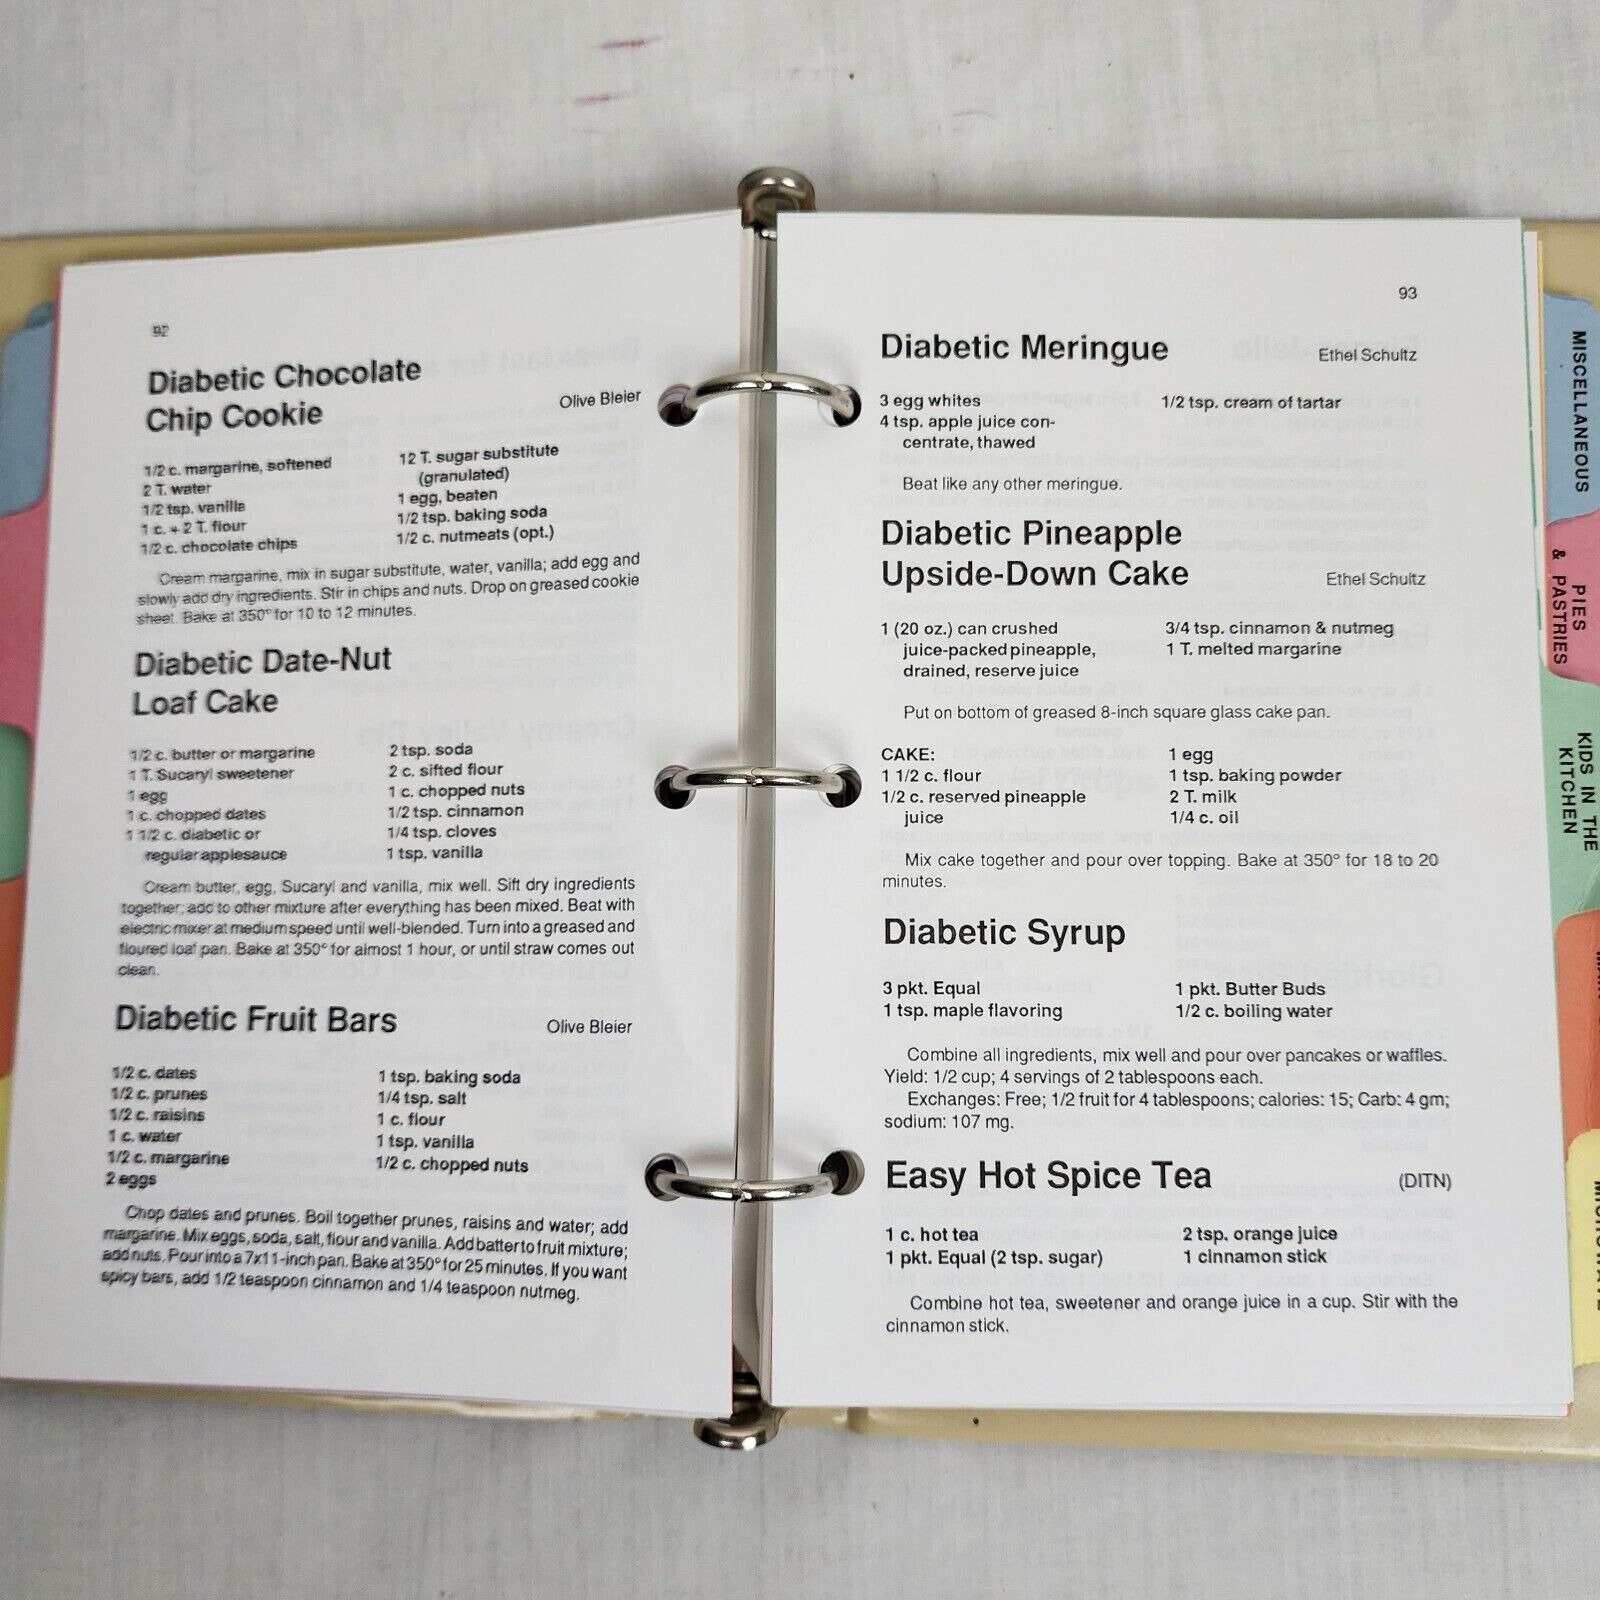 92
Diabetic Chocolate
Chip Cookie
Olive Bleier
1/2 c. margarine, softened
2 T. water
1/2 tsp. vanilla
1 c. + 2 T. flour
1/2 c. chocolate chips
12 T. sugar substitute
(granulated)
1 egg, beaten
1/2 tsp. baking soda
1/2 c. nutmeats (opt.)
Cream margarine, mix in sugar substitute, water, vanilla; add egg and
slowly add dry ingredients. Stir in chips and nuts. Drop on greased cookie
sheet. Bake at 350° for 10 to 12 minutes.
Diabetic Date-Nut
Loaf Cake
1/2 c. butter or margarine
1 T. Sucaryl sweetener
1 egg
1 c. chopped dates
1 1/2 c. diabetic or
regular applesauce
2 tsp. soda
2 c. sifted flour
1 c. chopped nuts
1/2 tsp. cinnamon
1/4 tsp. cloves
1 tsp. vanilla
Cream butter, egg, Sucaryl and vanilla, mix well. Sift dry ingredients
together; add to other mixture after everything has been mixed. Beat with
electric mixer at medium speed until well-blended. Turn into a greased and
floured loaf pan. Bake at 350° for almost 1 hour, or until straw comes out
clean.
Diabetic Fruit Bars
Olive Bleier
1/2 c. dates
1/2 c. prunes
1/2 c. raisins
1 c. water
1/2 c. margarine
2 eggs
1 tsp. baking soda
1/4 tsp. salt
1 c. flour
1 tsp. vanilla
1/2 c. chopped nuts
Chop dates and prunes. Boil together prunes, raisins and water; add
margarine. Mix eggs, soda, salt, flour and vanilla. Add batter to fruit mixture;
add nuts. Pour into a 7x11-inch pan. Bake at 350° for 25 minutes. If you want
spicy bars, add 1/2 teaspoon cinnamon and 1/4 teaspoon nutmeg.
93
Diabetic Meringue
Ethel Schultz
3 egg whites
4 tsp. apple juice con-
centrate, thawed
1/2 tsp. cream of tartar
Beat like any other meringue.
Diabetic Pineapple
Upside-Down Cake
Ethel Schultz
1 (20 oz.) can crushed
juice-packed pineapple,
drained, reserve juice
3/4 tsp. cinnamon & nutmeg
1 T. melted margarine
Put on bottom of greased 8-inch square glass cake pan.
CAKE:
1 1/2 c. flour
1/2 c. reserved pineapple
juice
1 egg
1 tsp. baking powder
2 T. milk
1/4 c. oil
Mix cake together and pour over topping. Bake at 350° for 18 to 20
minutes.
Diabetic Syrup
3 pkt. Equal
1 tsp. maple flavoring
1 pkt. Butter Buds
1/2 c. boiling water
Combine all ingredients, mix well and pour over pancakes or waffles.
Yield: 1/2 cup; 4 servings of 2 tablespoons each.
Exchanges: Free; 1/2 fruit for 4 tablespoons; calories: 15; Carb: 4 gm;
sodium: 107 mg.
Easy Hot Spice Tea
(DITN)
1 c. hot tea
1 pkt. Equal (2 tsp. sugar)
2 tsp. orange juice
1 cinnamon stick
Combine hot tea, sweetener and orange juice in a cup. Stir with the
cinnamon stick.
MISCELLANEOUS
PIES
& PASTRIES
KIDS IN THE
KITCHEN